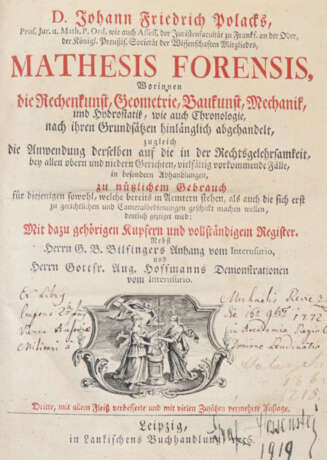 D. Johann Friedrich Polacks,
Prof. Jur. u. Math. P. Ord. wie auch Assess. der Juristenfacultät zu Frankf. an der Oder,
der Königl. Preußis. Societät der Wissenschaften Mitgliedes,
MATHESIS FORENSIS,
Worinnen
die Rechenkunst, Geometrie, Baukunst, Mechanik,
und Hydrostatik, wie auch Chronologie,
nach ihren Grundsätzen hinlänglich abgehandelt,
zugleich
die Anwendung derselben auf die in der Rechtsgelehrsamkeit,
bey allen obern und niedern Gerichten, vielfältig vorkommende Fälle,
in besondern Abhandlungen,
zu nützlichem Gebrauch
für diejenigen sowohl, welche bereits in Aemtern stehen, als auch die sich erst
zu gerichtlichen und Cameralbedienungen geschickt machen wollen,
deutlich gezeiget wird:
Mit dazu gehörigen Kupfern und vollständigem Register.
Nebst
Herrn G. B. Bilfingers Anhang vom Interusurio,
und
Herrn Gottfr. Aug. Hoffmanns Demonstrationen
vom Interusurio.
Ex Libris
1772
Dritte, mit allem Fleiß verbesserte und mit vielen Zusätzen vermehrte Auflage.
Leipzig,
in Lankischens Buchhandlung
1919